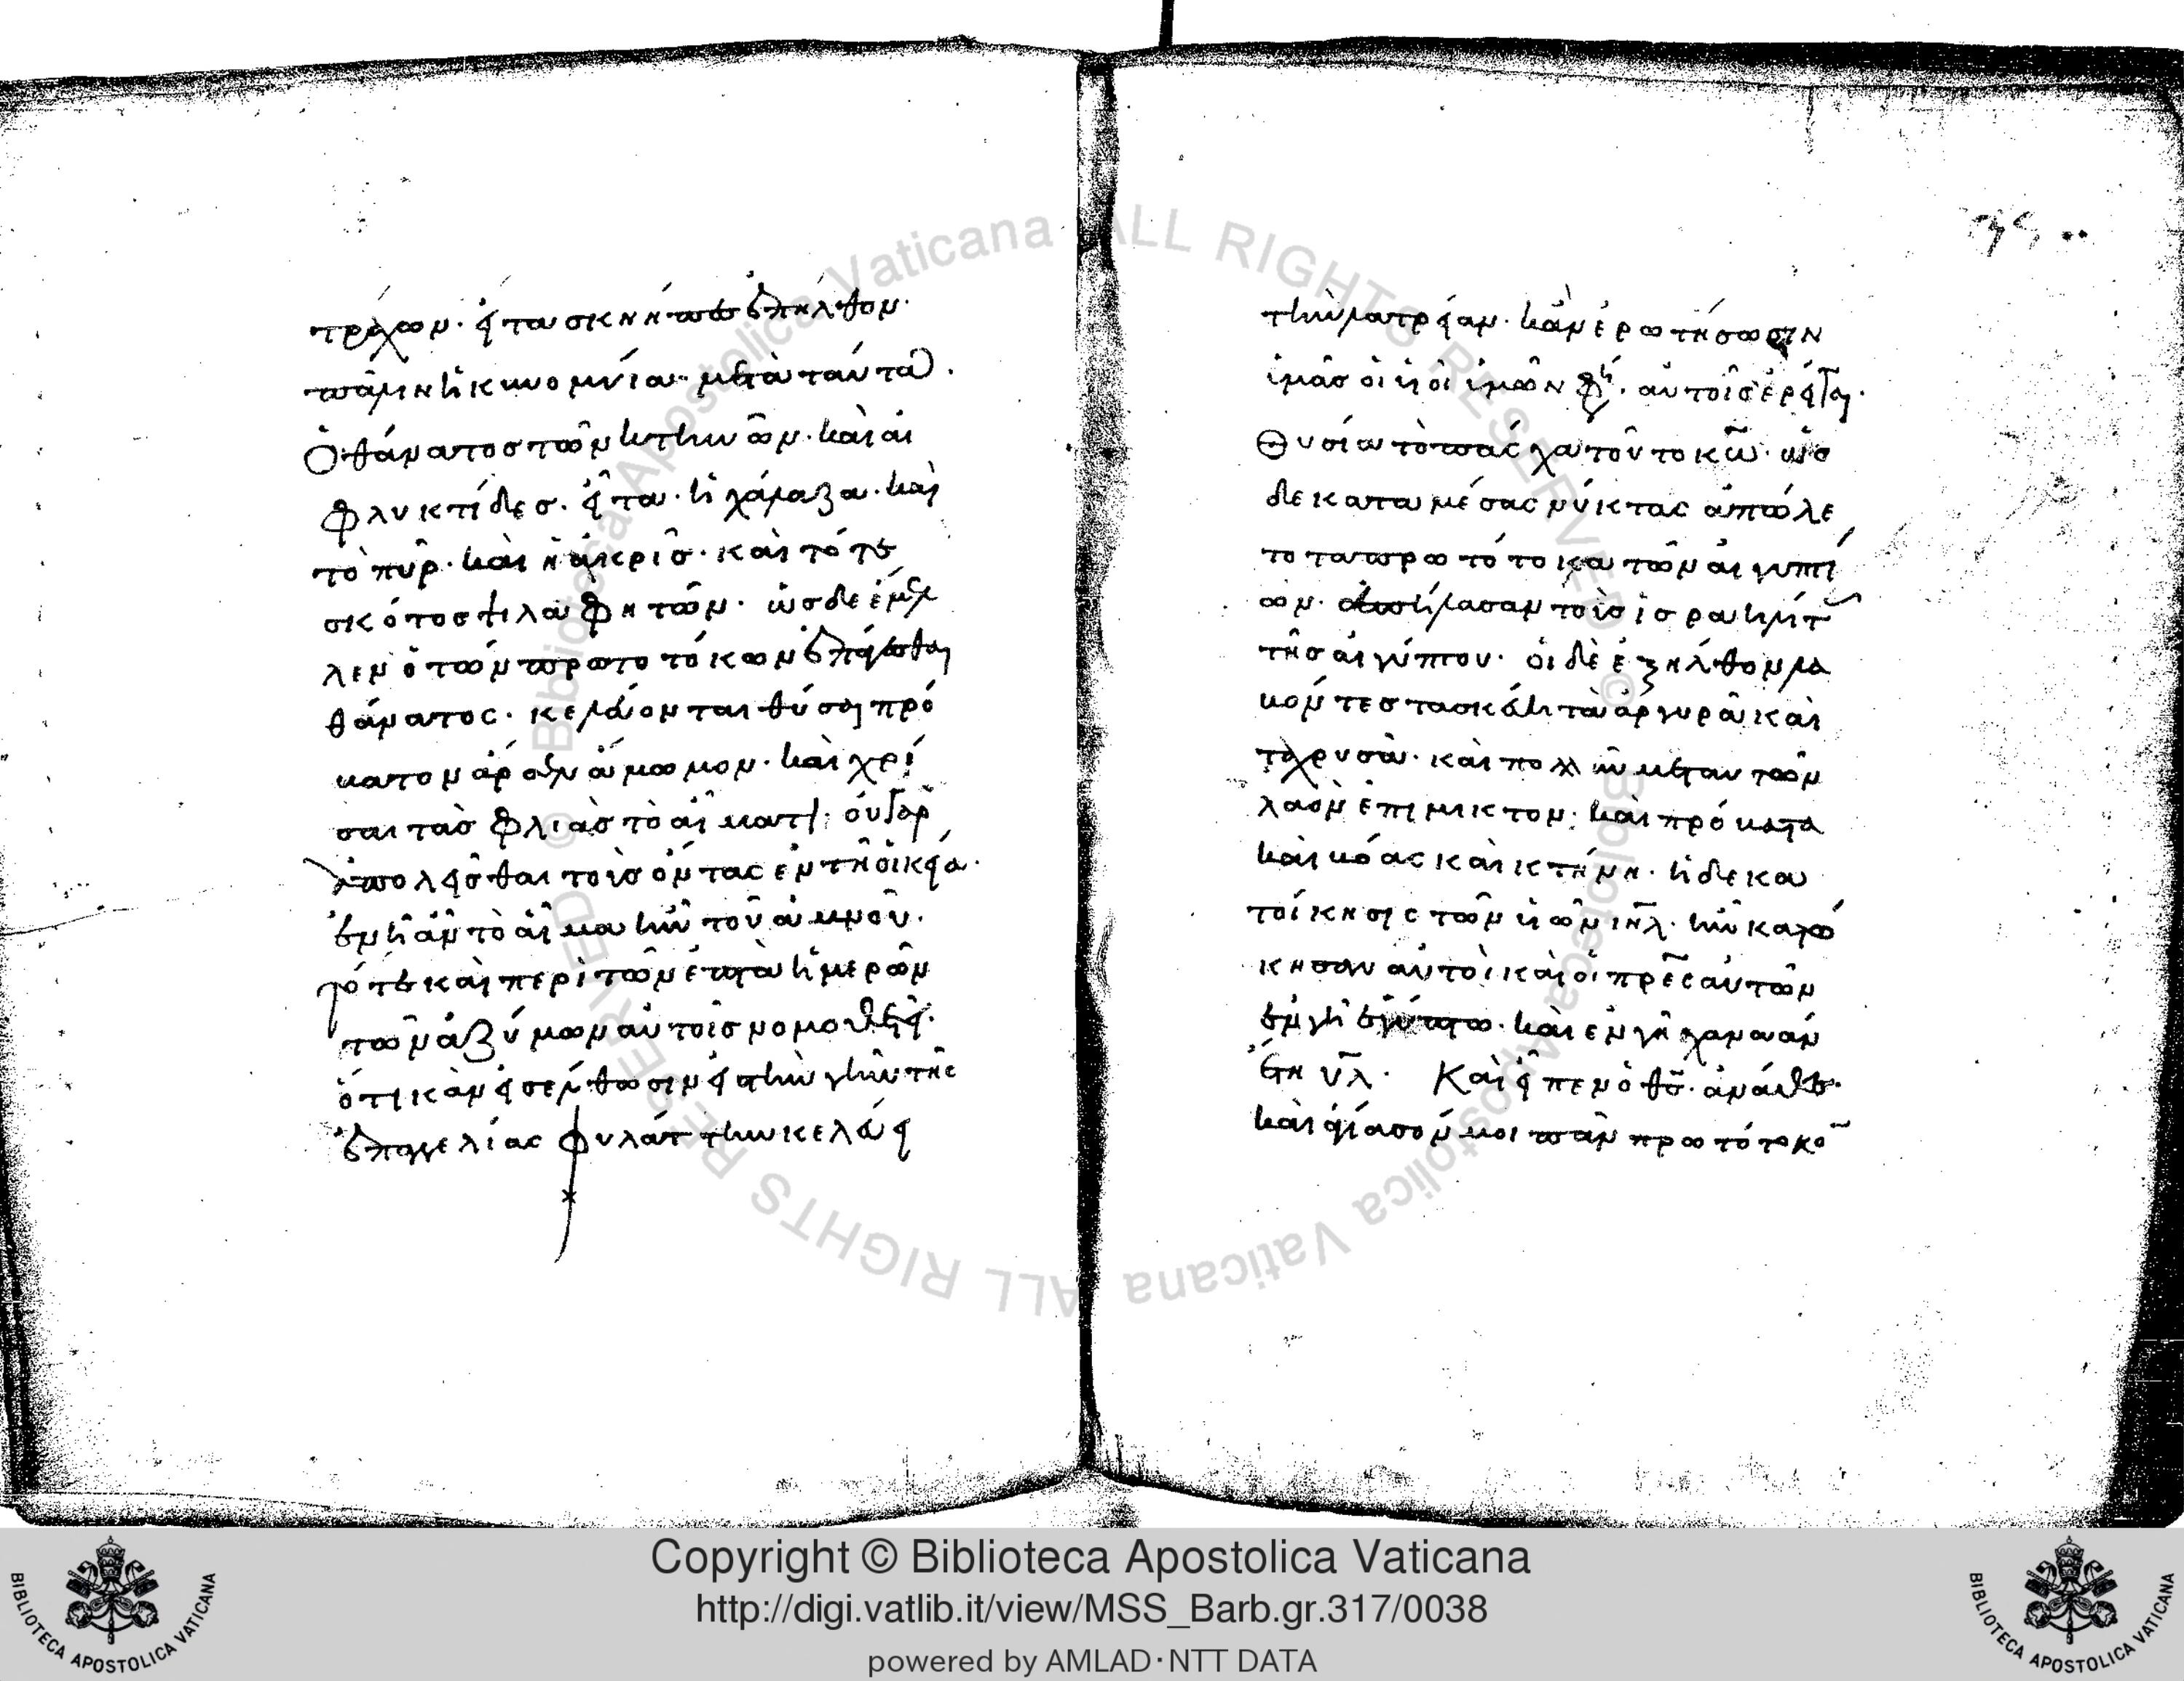 τρέχων· εἶτα σκνίπες ἐπῆλθον·
πάλιν ἡ κυνομυία· μετὰ ταῦτα·
Ὁ θάνατος τῶν κτηνῶν· καὶ αἱ
φλυκτίδες· εἶτα· ἡ χάλαζα· καὶ
τὸ πῦρ· καὶ ἡ ἀκρίς· καὶ τότε
σκότος ψιλαφητῶν· ὡς δὲ ἔμελ
λεν ὁ τῶν πρωτοτόκων ἐπάγεσθαι
θάνατος· κελεύονται θύσαι πρό
βατον ἄρσεν ἄμωμον· καὶ χρί
σαι τὰς φλιὰς τὸ αἵματι· οὐ γὰρ
ἀπολεῖσθαι τοὺς ὄντας ἐν τῆ οἰκεία·
ἐν ἧ ἂν τὸ αἷμα ἦν τοῦ ἀμνοῦ·
τότε καὶ περὶ τῶν ἑπτὰ ἡμερῶν
τῶν ἀζύμων αὐτοῖς νομοθετεῖ·
ὅτι κἂν εἰσέλθωσιν εἰς τὴν γῆν τῆς
ἐπαγγελίας φυλάττην κελεύει
τὴν λατρείαν· κἂν ἐρωτήσωσιν
ἡμᾶς οἱ υἱοὶ ἡμῶν φη· αὐτοῖς ἐρεῖται·
Θυσία τὸ πάσχα τοῦτο κω· ὡς
δὲ κατα μέσας νύκτας ἀπώλε
το τα πρωτότοκα τῶν αἰγυπτί
ων· τοὺς ισραηλίτ
τῆς αἰγύπτου· οἱ δὲ ἐξῆλθον λα
βόντες τα σκεύη τὰ ἀργυρᾶ καὶ
τὰ χρυσᾶ· καὶ πολὺν μεταυτῶν
λαὸν ἐπίμικτον· καὶ πρόβατα
καὶ βόας καὶ κτήνη· ἡ δὲ κα
τοίκησις τῶν υἱῶν ιηλ· ἣν κατώ
κησαν αὐτοὶ καὶ οἱ πρες αὐτῶν
ἐν γῆ ἐγύπτω· καὶ ἐν γῆ χαναάν
Ἔτη υλ· Καὶ εἶπεν ὁ θς·
καὶ ἁγίασόν μοι πᾶν πρωτότοκο